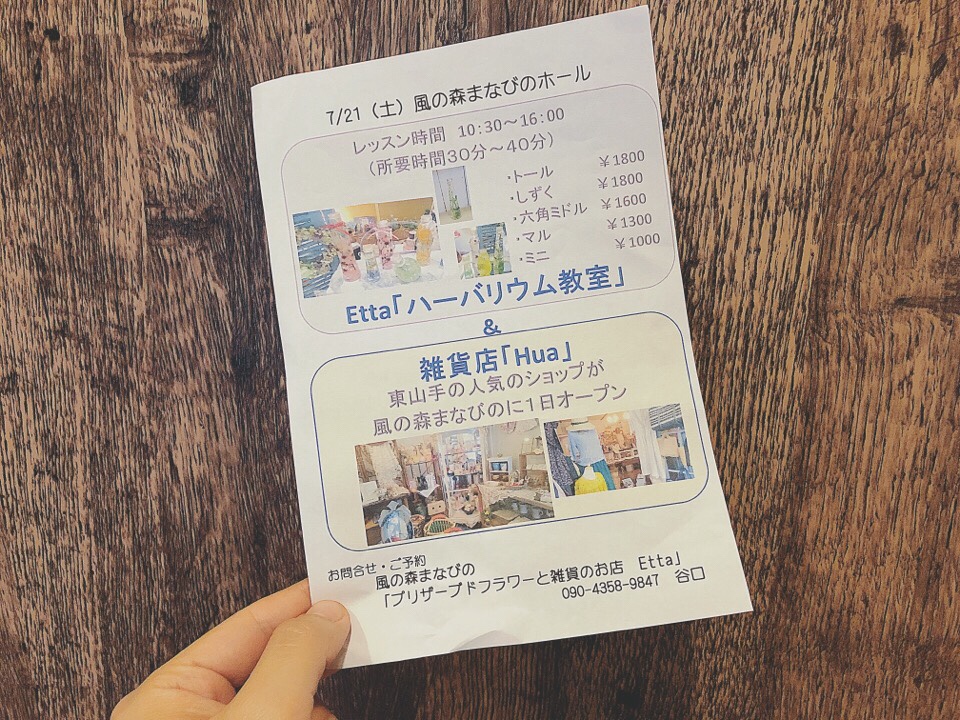 7/21（土）風の森まなびのホール
レッスン時間　10:30～16:00
（所要時間30分～40分）
・トール　￥1800
・しずく　￥1800
・六角ミドル　￥1600
・マル　￥1300
・ミニ　￥1000
Etta「ハーバリウム教室」
&
雑貨店「Hua」
東山手の人気のショップが
風の森まなびのに1日オープン
お問合せ・ご予約
風の森まなびの
「プリザーブドフラワーと雑貨のお店　Etta」
090-4358-9847　谷口